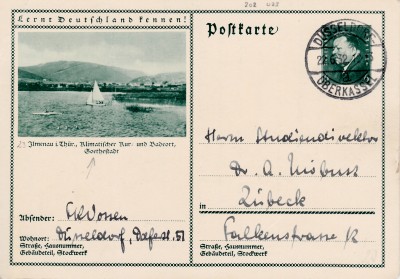 Lernt Deutschland kennen!
Postkarte
DÜSSELDORF
OBERKASSEL
Ilmenau i. Thür., Klimatischer Kur- und Badeort,
Goethestadt
Herrn Studiendirektor
Dr. A. Möbusz
in Lübeck
Falkenstrasse 12
Straße, Hausnummer,
Gebäudeteil, Stockwerk
Absender:
Wohnort: Düsseldorf, 51
Straße, Hausnummer,
Gebäudeteil, Stockwerk